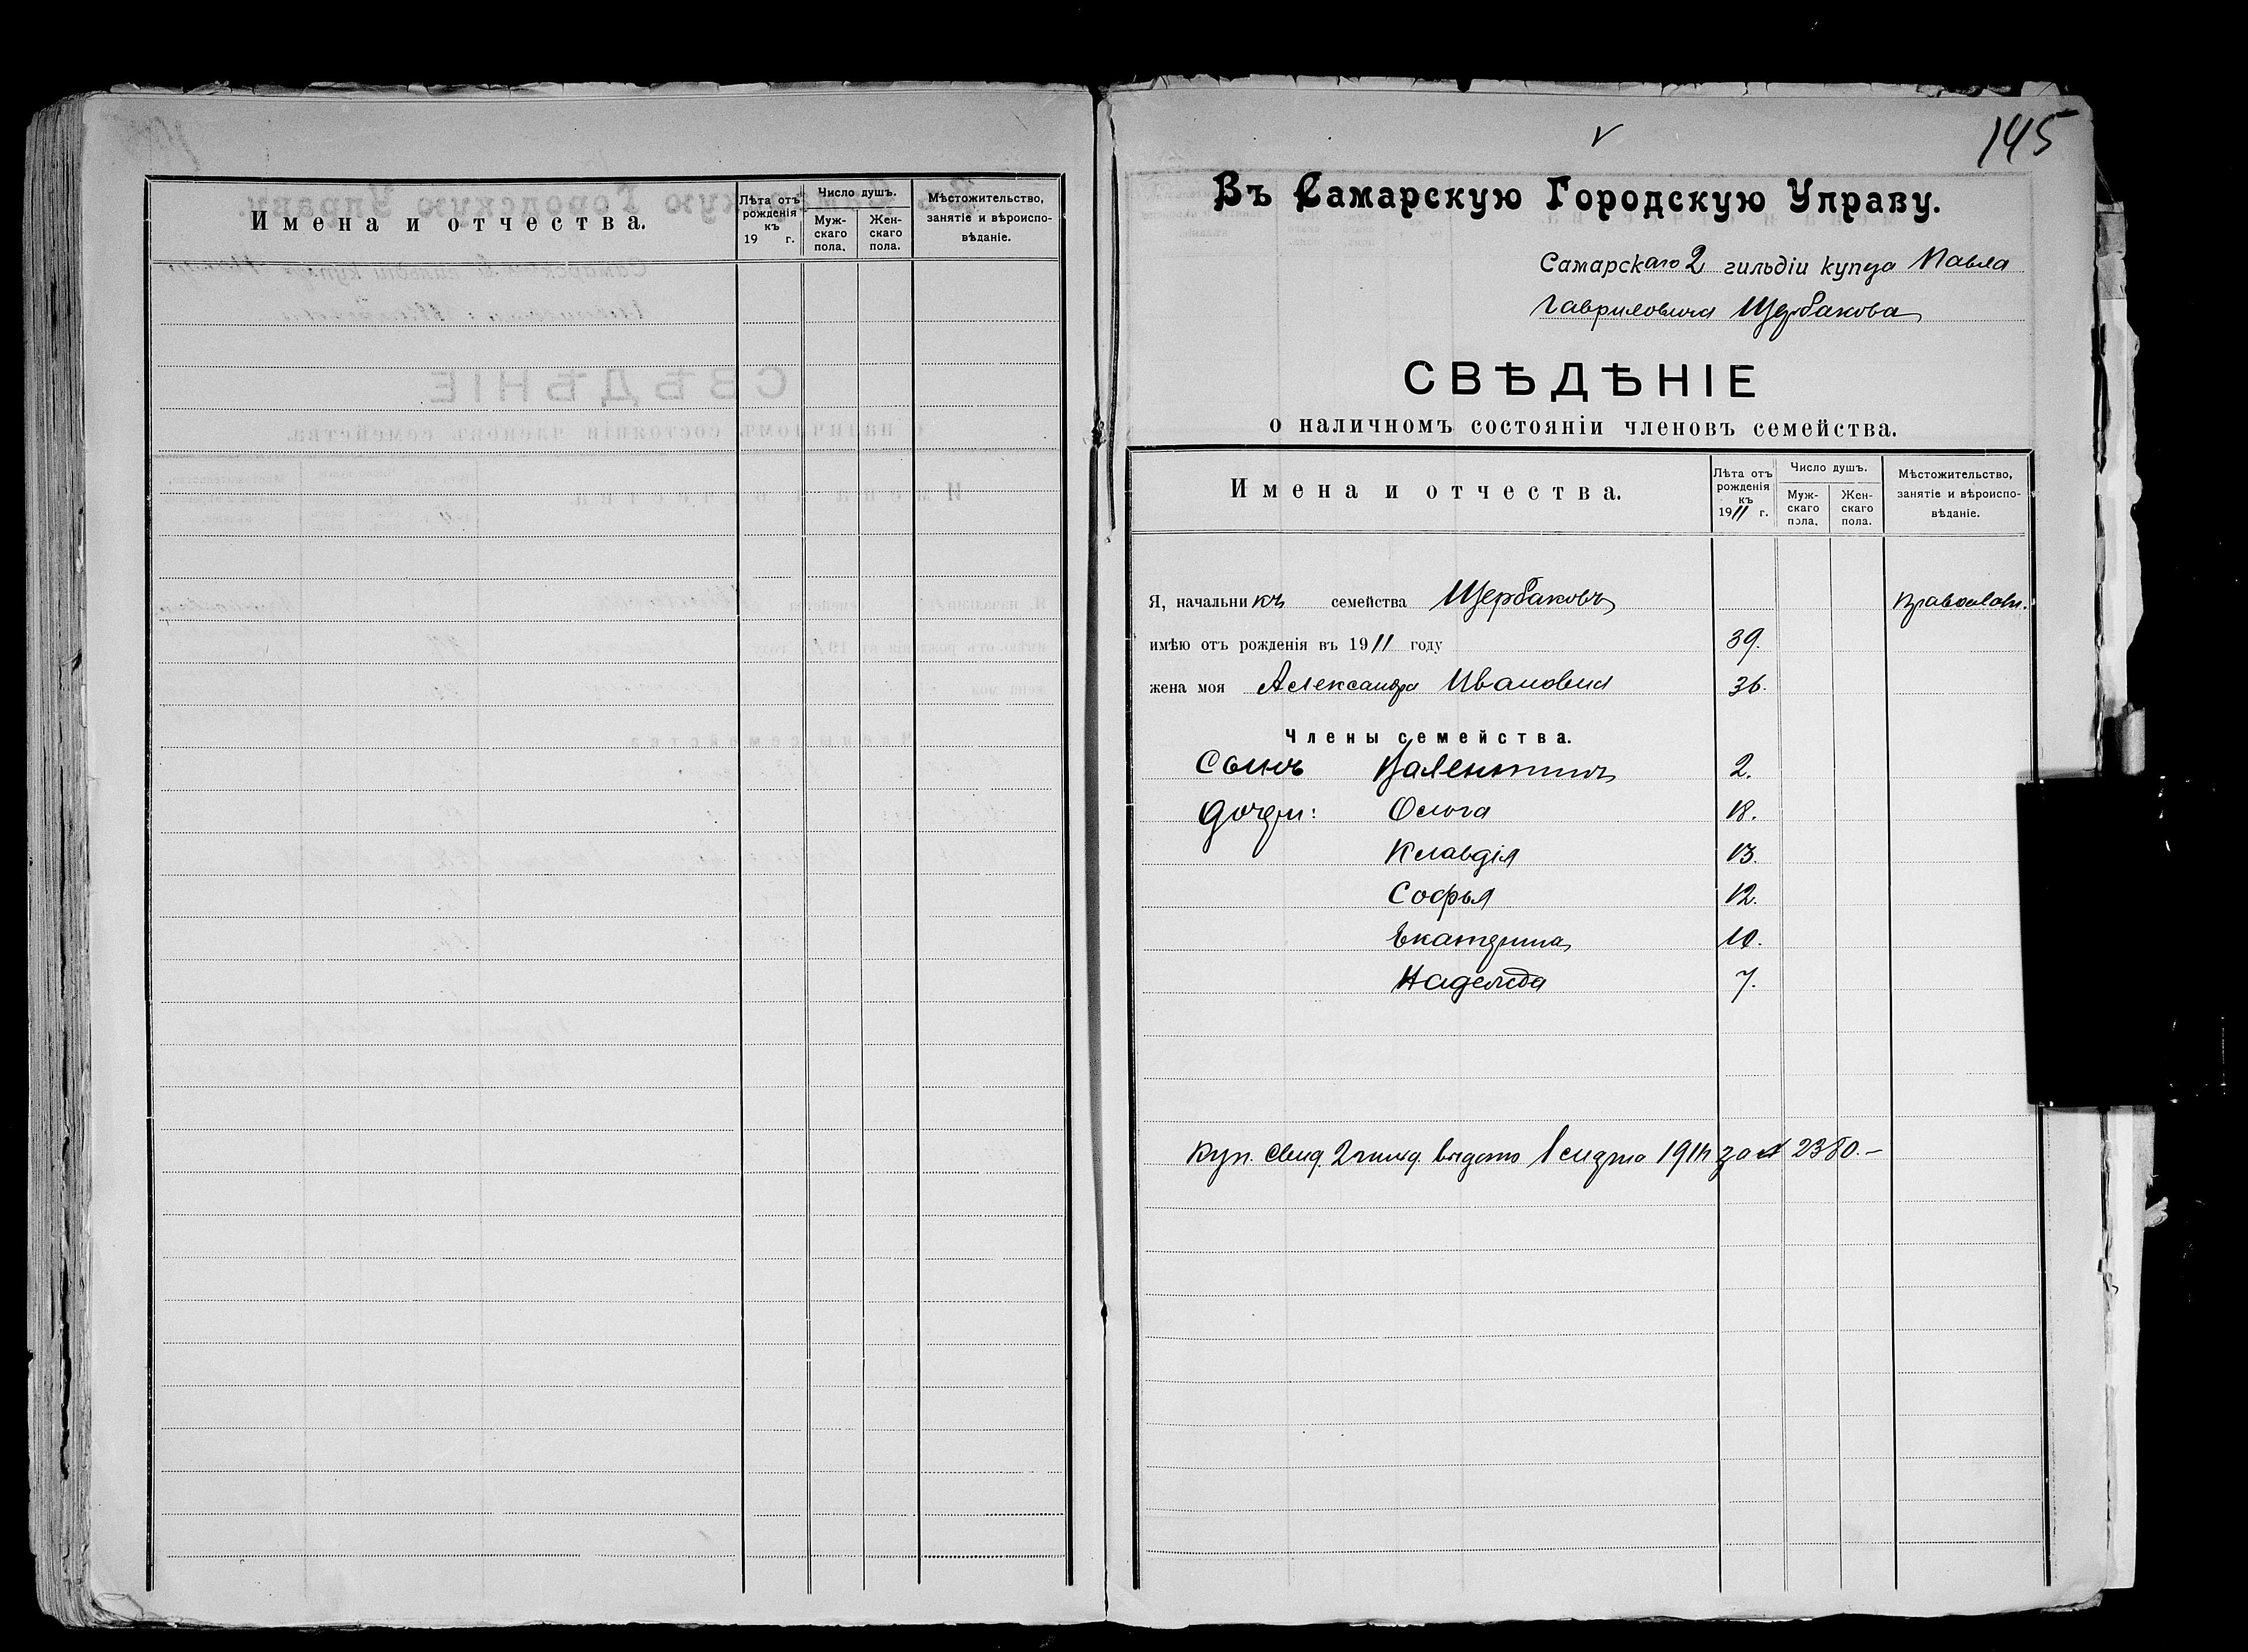 Имена и отчества.
Лѣта отъ рожденія къ 19 г.
Число душъ.
Мужскаго пола.
Женскаго пола.
Мѣстожительство, занятіе и вѣроисповѣданіе.
145
Въ Самарскую Городскую Управу.
Самарскаго 2 гильдіи купца Павла
Гавриловича Щербакова
СВѢДѢНІЕ
о наличномъ состояніи членовъ семейства.
Имена и отчества.
Лѣта отъ рожденія къ 1911 г.
Число душъ.
Мужскаго пола.
Женскаго пола.
Мѣстожительство, занятіе и вѣроисповѣданіе.
Я, начальникъ семейства Щербаковъ Православн.
имѣю отъ рожденія въ 1911 году 39.
жена моя Александра Ивановна 36.
Члены семейства.
Сынъ Валентинъ 2.
Дочери: Ольга 18.
Клавдія 13.
Софья 12.
Екатерина 10.
Надежда 7.
Куп. Свид. 2 гильд. выдано 1 1911 за № 2380.-